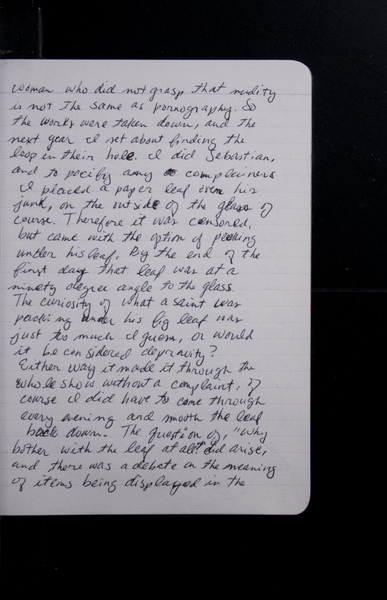 woman who did not grasp that nudity
is not the same as pornography. So
the works were taken down, and the
next year I set about finding the
loop in their hole. I did Sebastian,
and to pecify any complainers
I placed a paper leaf over his
junk, on the outside of the glass of
course. Therefore it was censored,
but came with the option of peeking
under his leaf. By the end of the
first day that leaf was at a
ninety degree angle to the glass.
The curiosity of what a saint was
packing under his fig leaf was
just too much I guess, or would
it be considered depravity?
Either way it made it through the
whole show without a complaint, of
course I did have to come through
every evening and smooth the leaf
back down. The question of, "Why
bother with the leaf at all?" did arise,
and there was a debate on the meaning
of items being displayed in the